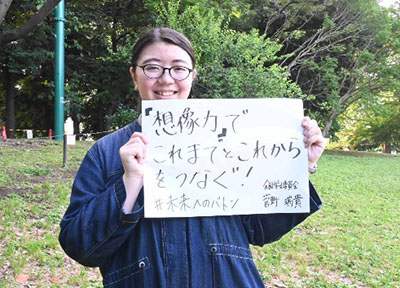 『想像力』で
これまでとこれから
をつなぐ!
#未来へのバトン
菅野 瑞貴